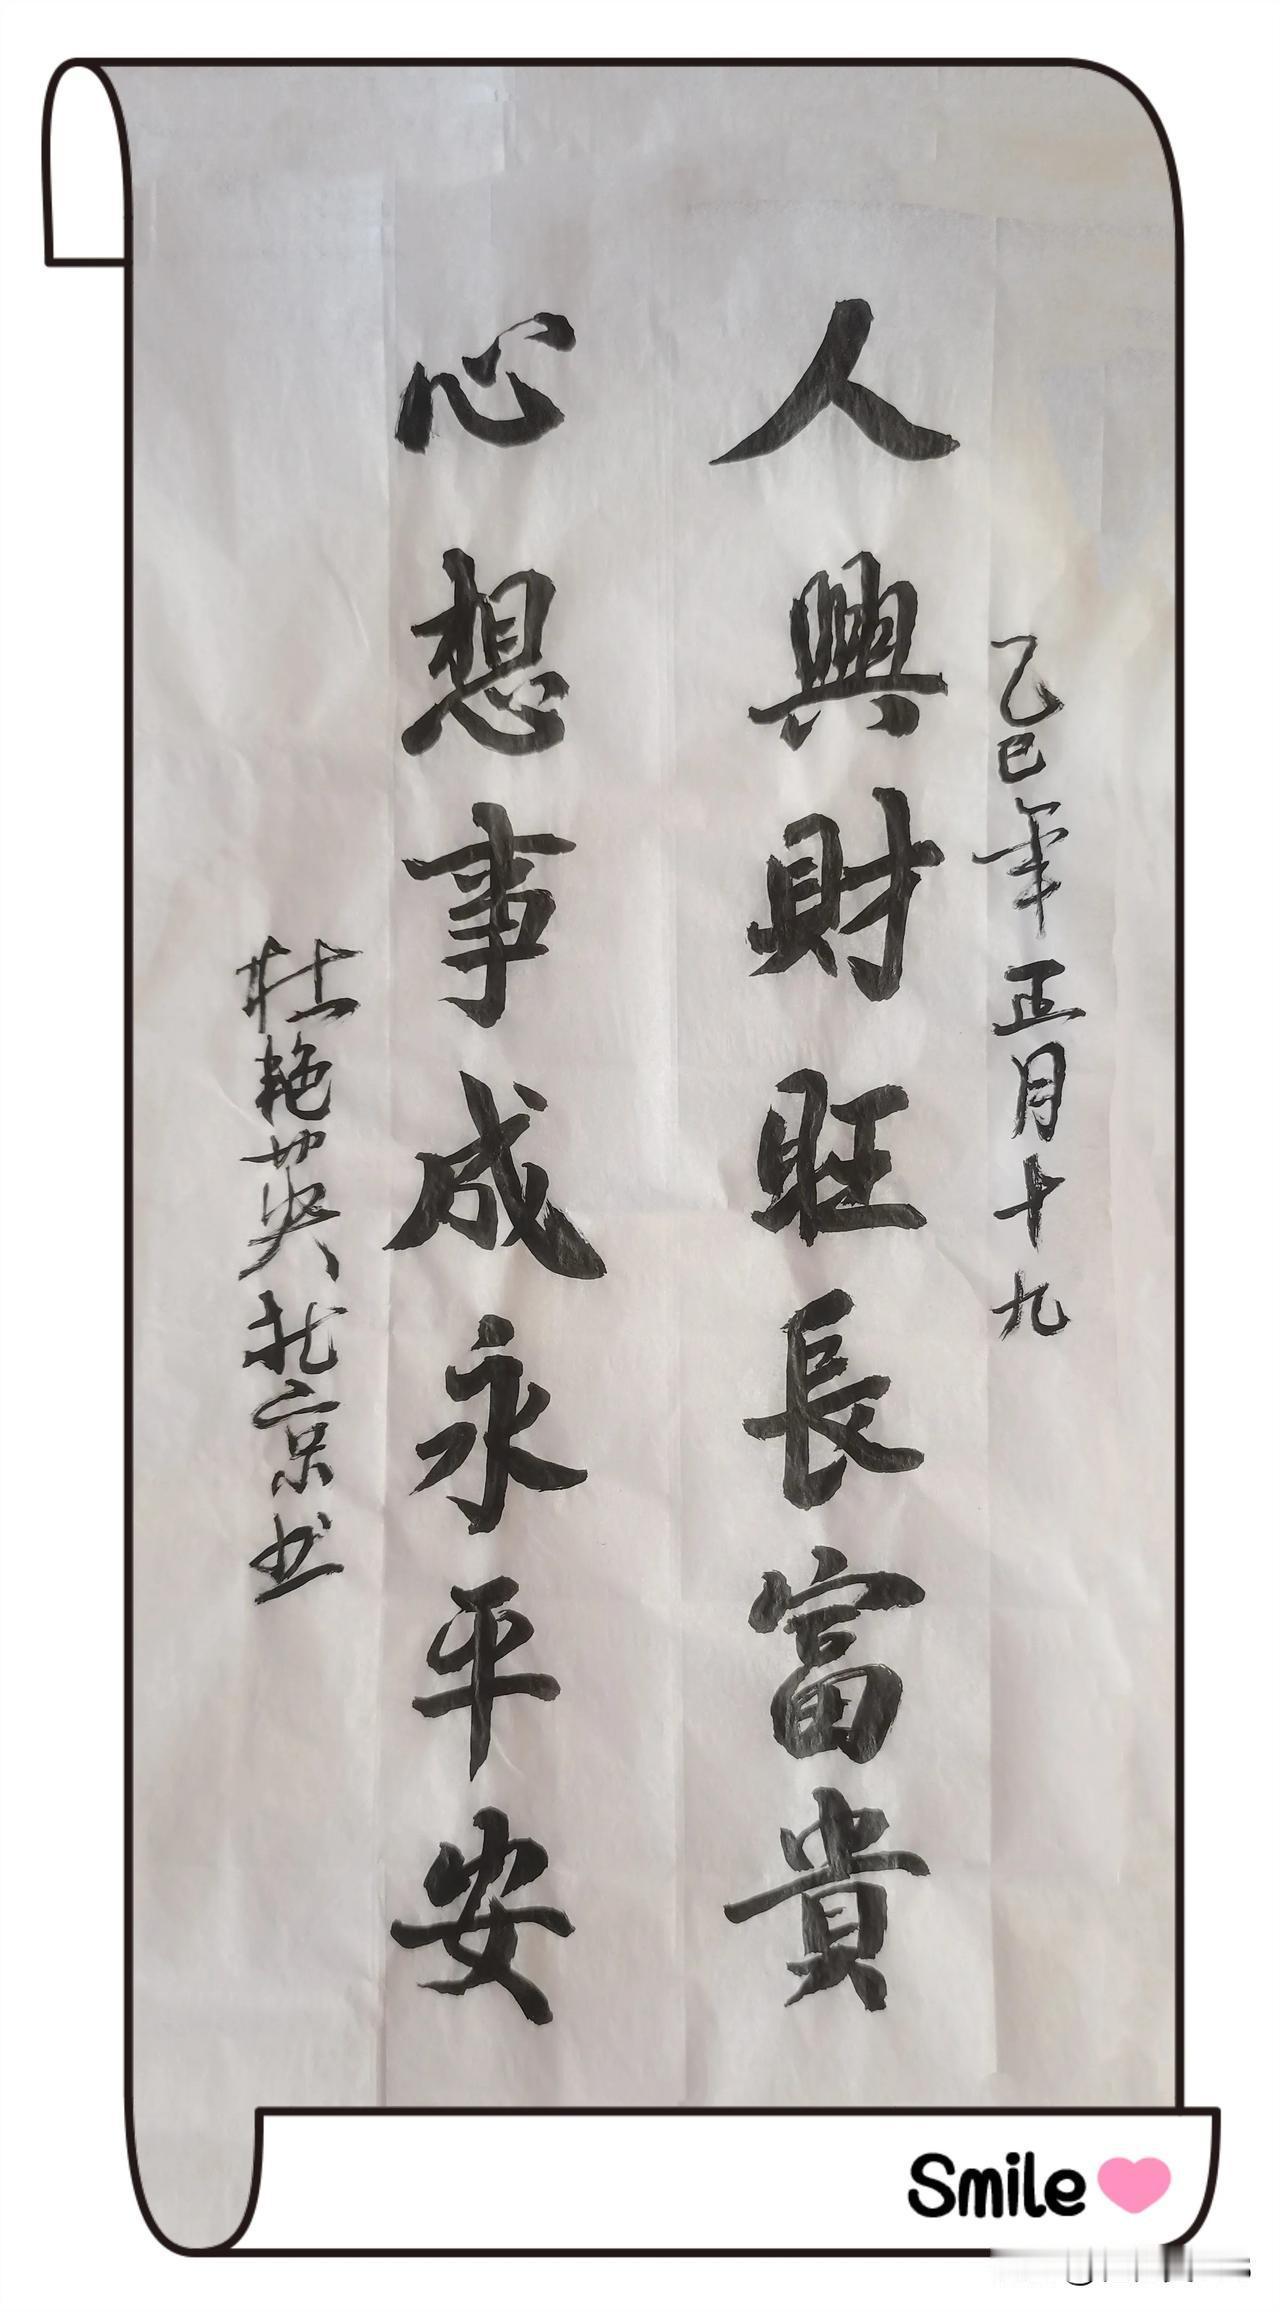 乙巳年正月十九
人興財旺長富貴
心想事成永平安
杜艳英北京书
Smile